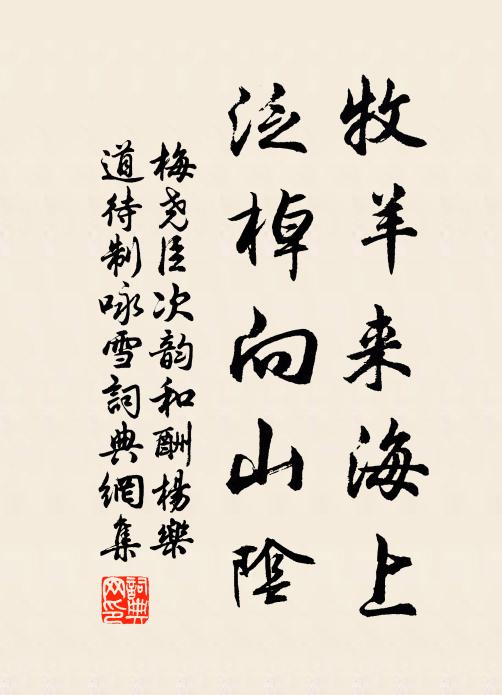 牧羊来海上
泛棹向山陰
梅尧臣次韵和酬楊樂
道待制咏雪詞典網集
詞典
网印